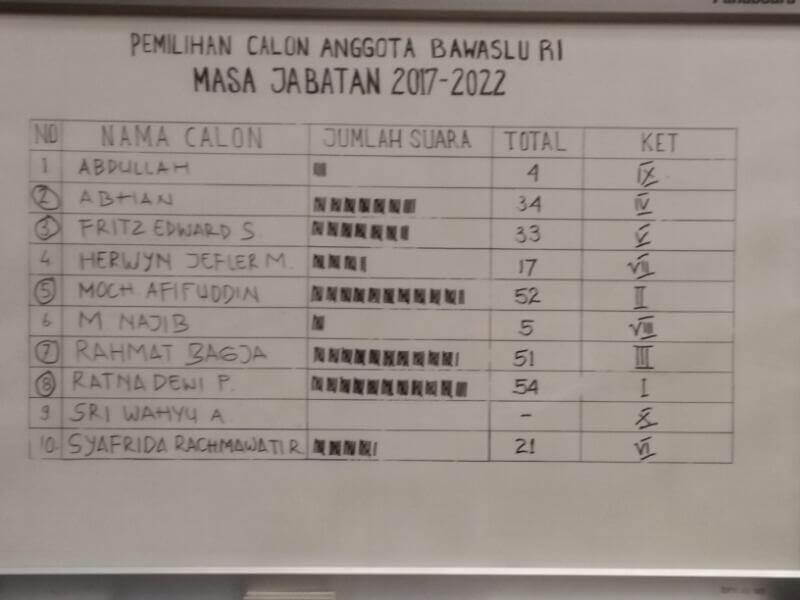 PEMILIHAN CALON ANGGOTA BAWASLU RI
MASA JABATAN 2017-2022
NO NAMA CALON JUMLAH SUARA TOTAL KET
1 ABDULLAH 4 IX
2 ABHAN 34 IV
3 FRITZ EDWARD S. 33 V
4 HERWYN JEFLER M. 17 VII
5 MOCH AFIFUDDIN 52 II
6 M NAJIB 5 VIII
7 RAHMAT BAGJA 51 III
8 RATNA DEWI P. 54 I
9 SRI WAHYU A. - X
10. SYAFRIDA RACHMAWATI R 21 VI